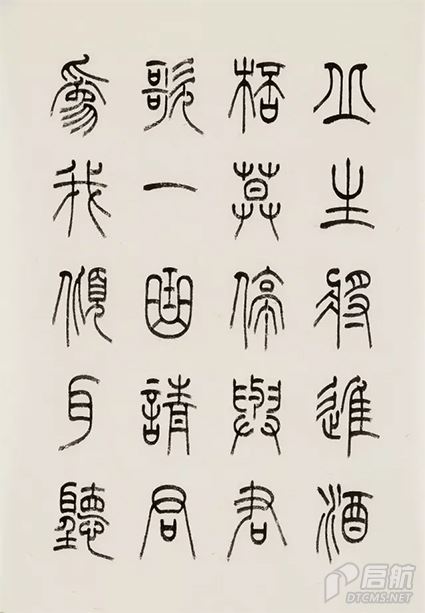 丘生將進酒
桮莫停與君
歌一曲請君
為我傾耳聽
启航
DTCMS.NET